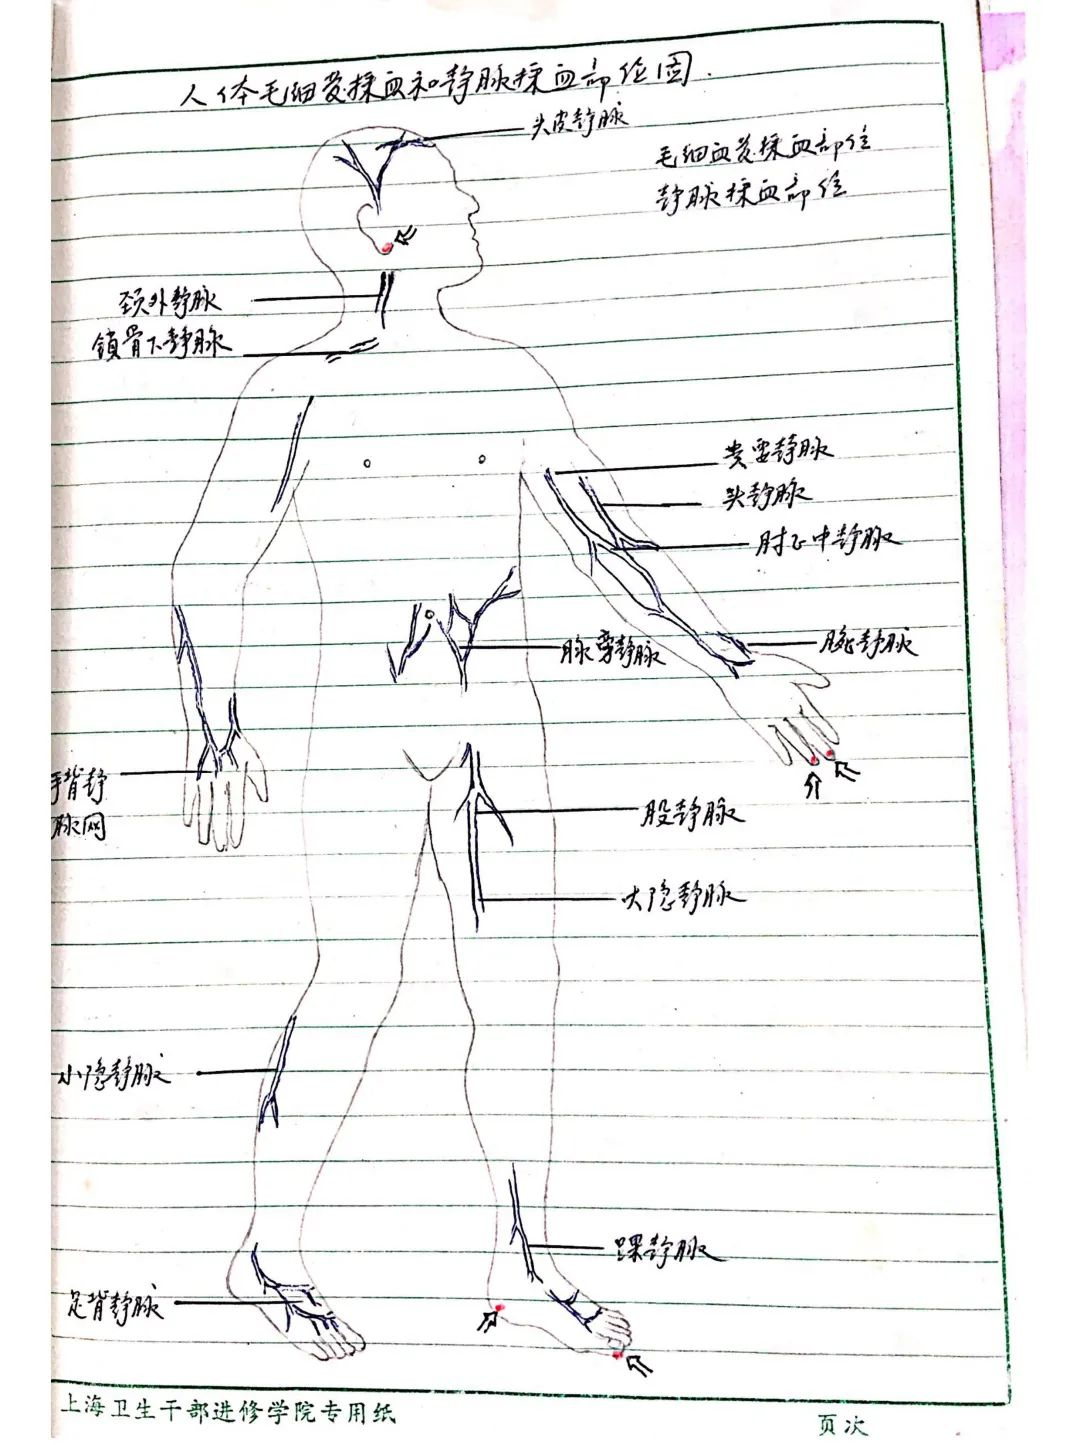 人体毛细管採血和静脉採血部位图.
头皮静脉
毛细血管採血部位
静脉採血部位
颈外静脉
鎖骨下静脉
贵要静脉
头静脉
肘正中静脉
脉穿静脉
腕静脉
手背静
脉网
股静脉
大隐静脉
小隐静脉
踝静脉
足背静脉
上海卫生干部进修学院专用纸
页次